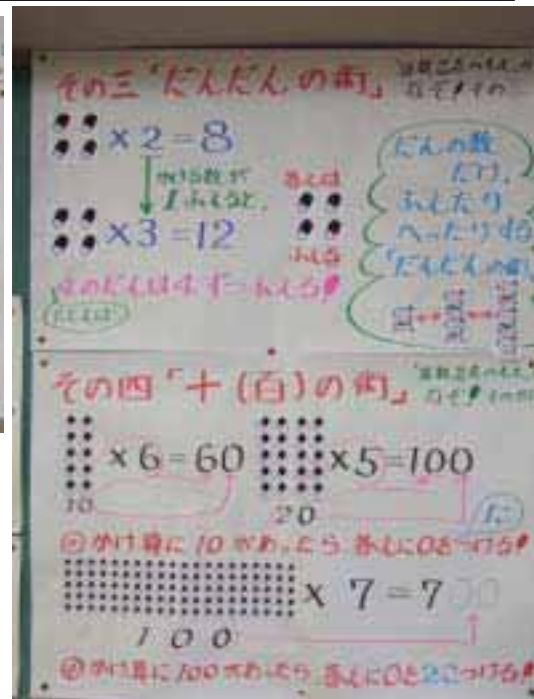 その三「だんだんの術」
× 2 = 8
かける数が
1ふえると、
答えは
× 3 = 12
ふえる
4のだんは4ずつふえる!
だんの数
だけ、
ふえたり
へったりする
「だんだんの術」
その四「十(百)の術」
× 6 = 60
× 5 = 100
10
20
㋐かけ算に10があったら答えに0をつける!
× 7 = 700
100
かけ算に100があったら答えに0を2こつける!